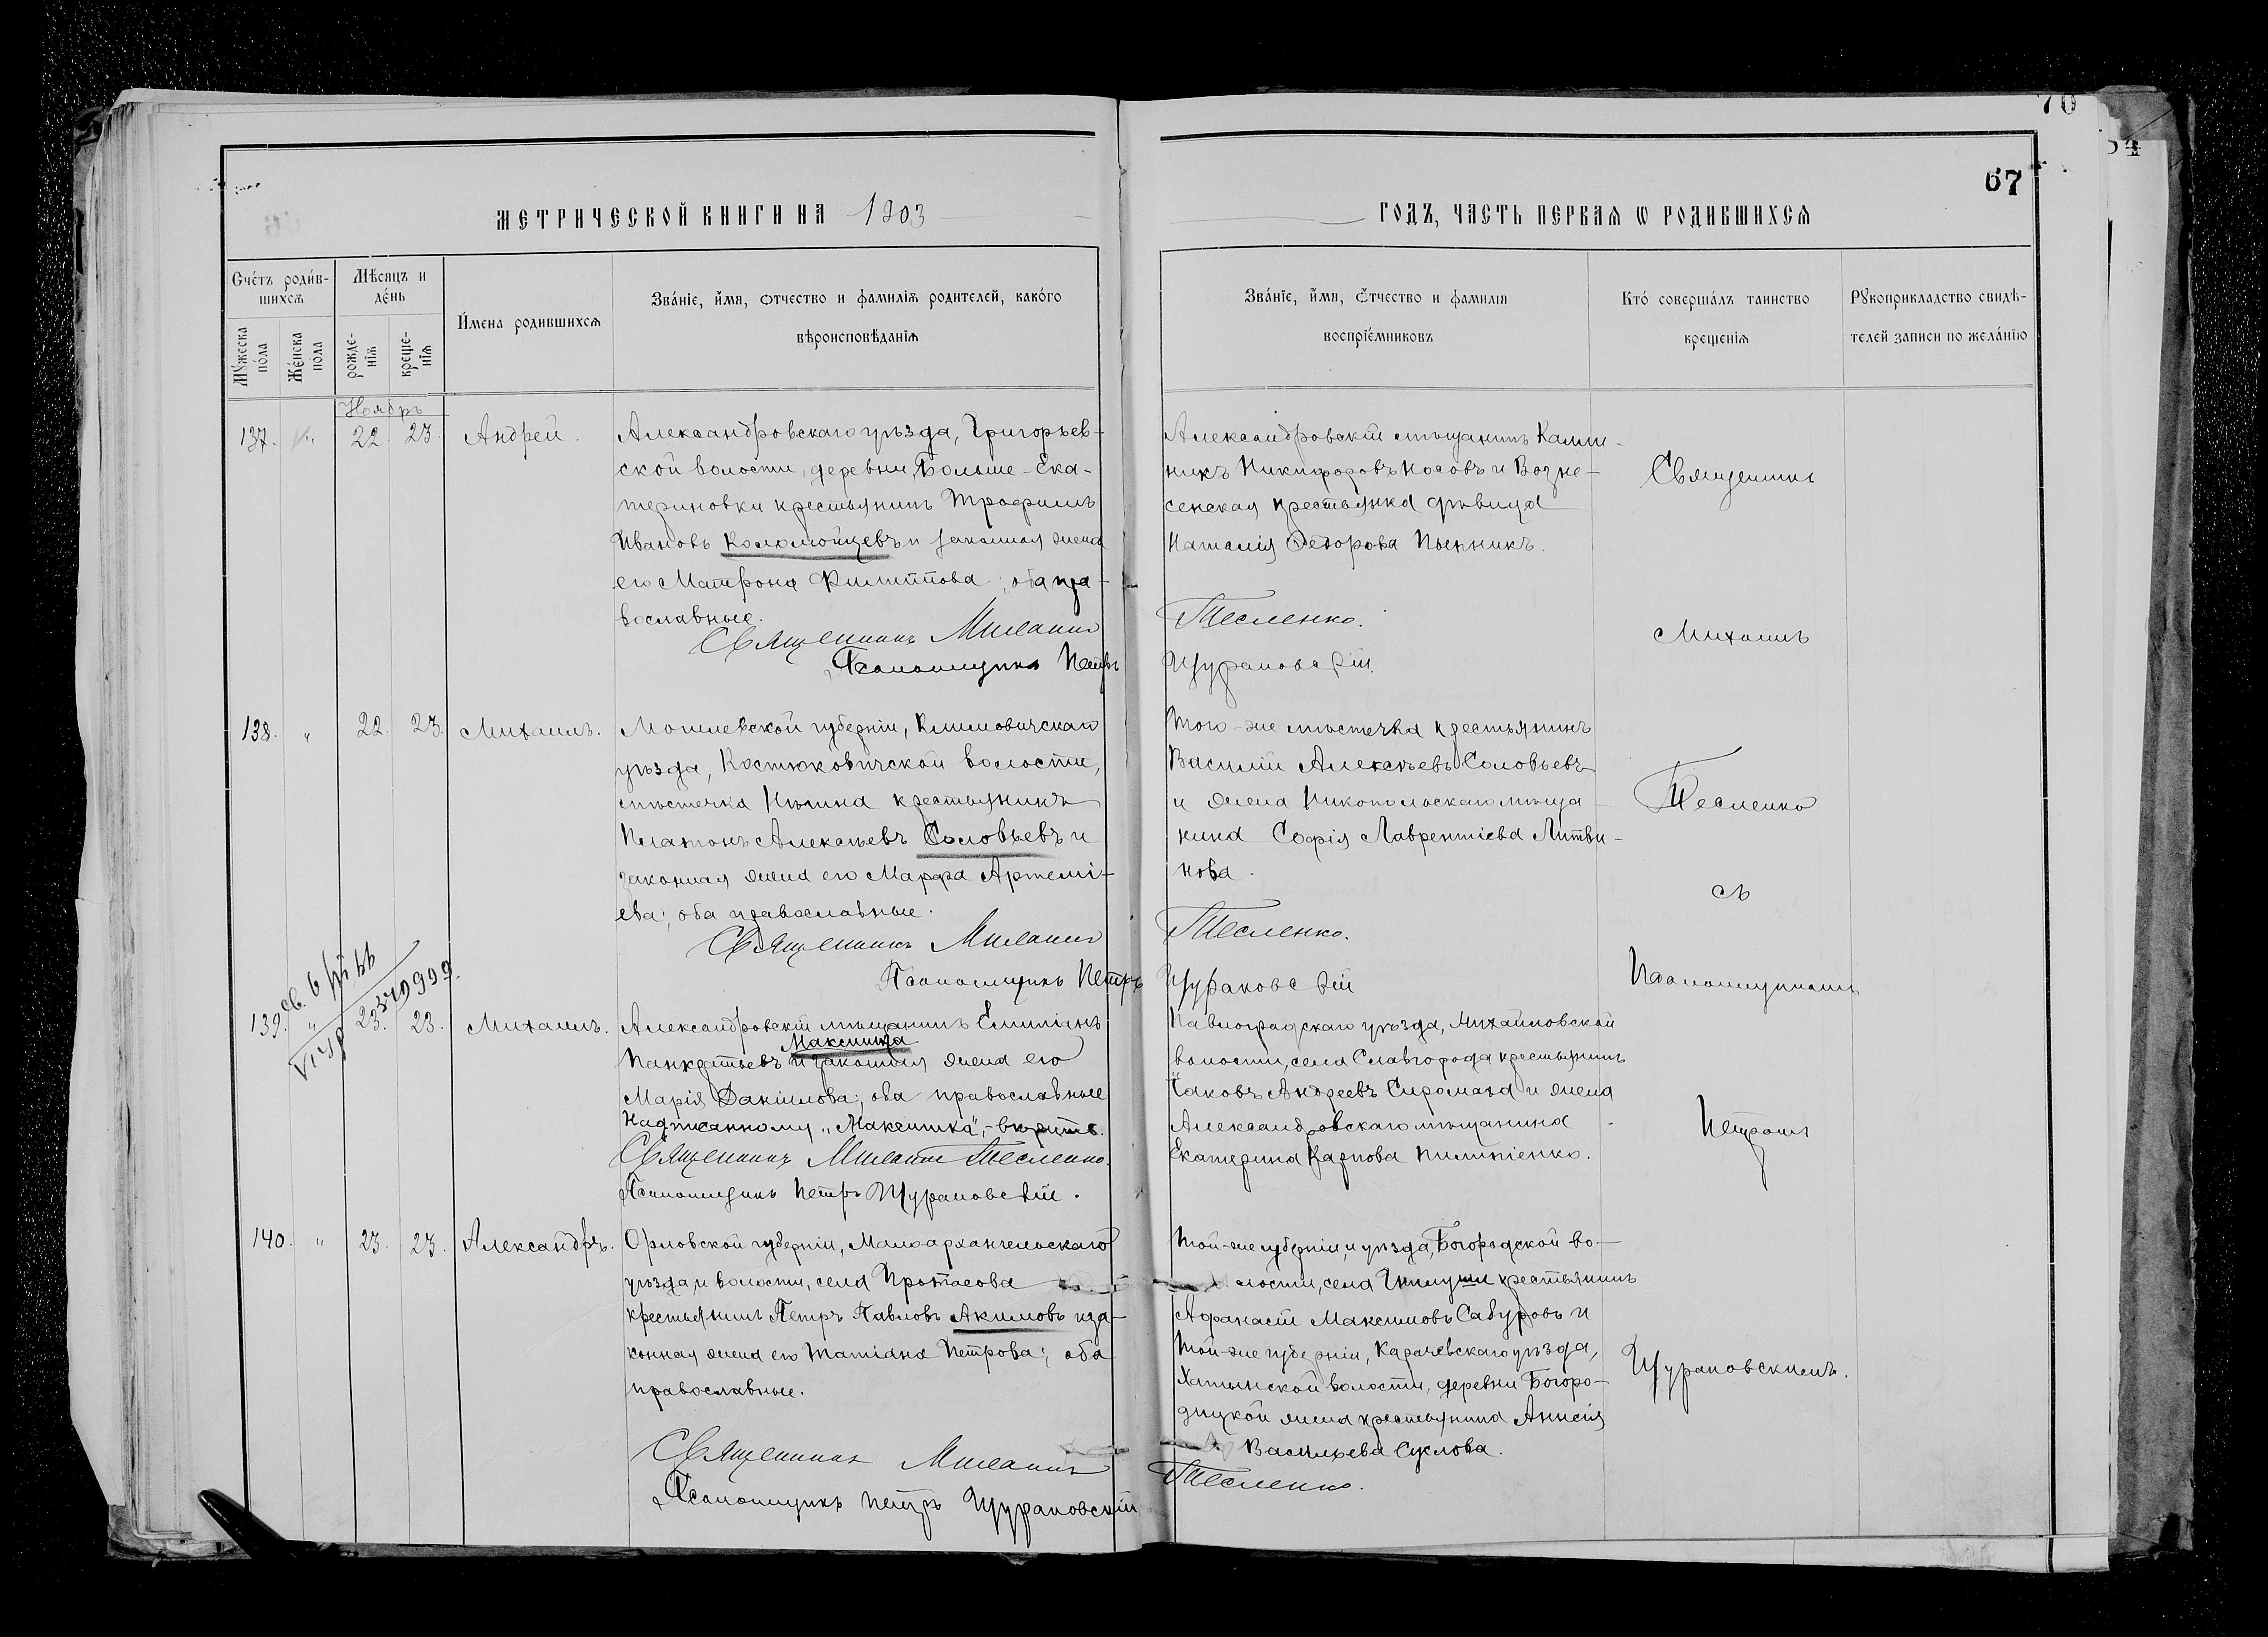 70
54
67
МЕТРИЧЕСКОЙ КНИГИ НА 1903
ГОДЪ, ЧАСТЬ ПЕРВАЯ Ѡ РОДИВШИХСЯ
Счетъ родив-
шихся
Мѣсяцъ и
день
Имена родившихся
Званіе, имя, отчество и фамилія родителей, какого
вѣроисповѣданія
Мужеска
пола
Женска
пола
рожде-
нія
креще-
нія
Званіе, имя, отчество и фамилія
воспріемниковъ
Кто совершалъ таинство
крещенія
Рукоприкладство свидѣ-
телей записи по желанію
Ноябрь
137. " 22. 23. Андрей.
Александровскаго уѣзда, Григорьев-
ской волости, деревни Больше-Ека-
териновки крестьянинъ Трофимъ
Ивановъ Коломойцевъ и законная жена
его Матрона Филиппова; оба пра-
вославные.
Священникъ Михаилъ
Псаломщикъ Петръ
Александровскій мѣщанинъ
никъ Никифоровъ Носовъ и Возне-
сенская крестьянка дѣвица
Наталія Ѳедорова Пьянникъ.
Тесленко.
Щурановскій.
Священникъ
Михаилъ
138. " 22. 23. Михаилъ.
Могилевской губерніи, Климовичскаго
уѣзда, Костюковичской волости,
мѣстечка крестьянинъ
Платонъ Алексѣевъ Соловьевъ и
законная жена его Марфа Артемі-
ева; оба православные.
Священникъ Михаилъ
Псаломщикъ Петръ
Того-же мѣстечка крестьянинъ
Василій Алексѣевъ Соловьевъ
и жена Никопольскаго мѣща-
нина Софія Лаврентіева Литви-
нова.
Тесленко.
Щурановскій
Тесленко
съ
Псаломщикомъ
139. " 23. 23. Михаилъ.
Александровскій мѣщанинъ Емиліанъ
Максимка
Панкратьевъ и законная жена его
Марія Даніилова; оба православные
Надписанному „Максимка",- вѣрить.
Священникъ Михаилъ Тесленко.
Псаломщикъ Петръ Щурановскій.
Павлоградскаго уѣзда, Михайловской
волости, села Славгорода крестьянинъ
Іаковъ Андреевъ Сиромаха и жена
Александровскаго мѣщанина
Екатерина Карпова Пилипіенко.
Петромъ
140. " 23. 23. Александръ.
Орловской губерніи, Малоархангельскаго
уѣзда, и волости, села Протасова
крестьянинъ Петръ Павловъ Акимовъ и за-
конная жена его Татіана Петрова; оба
православные.
Священникъ Михаилъ
Псаломщикъ Петръ Щурановскій
Той-же губерніи, и уѣзда, Богородской во-
лости, села Гнилуши крестьянинъ
Аѳанасій Максимовъ Сабуровъ и
Той-же губерніи, Карачевскаго уѣзда,
волости, деревни Богоро-
дицкой жена крестьянина Анисія
Васильева Суслова.
Тесленко.
Щурановскимъ.